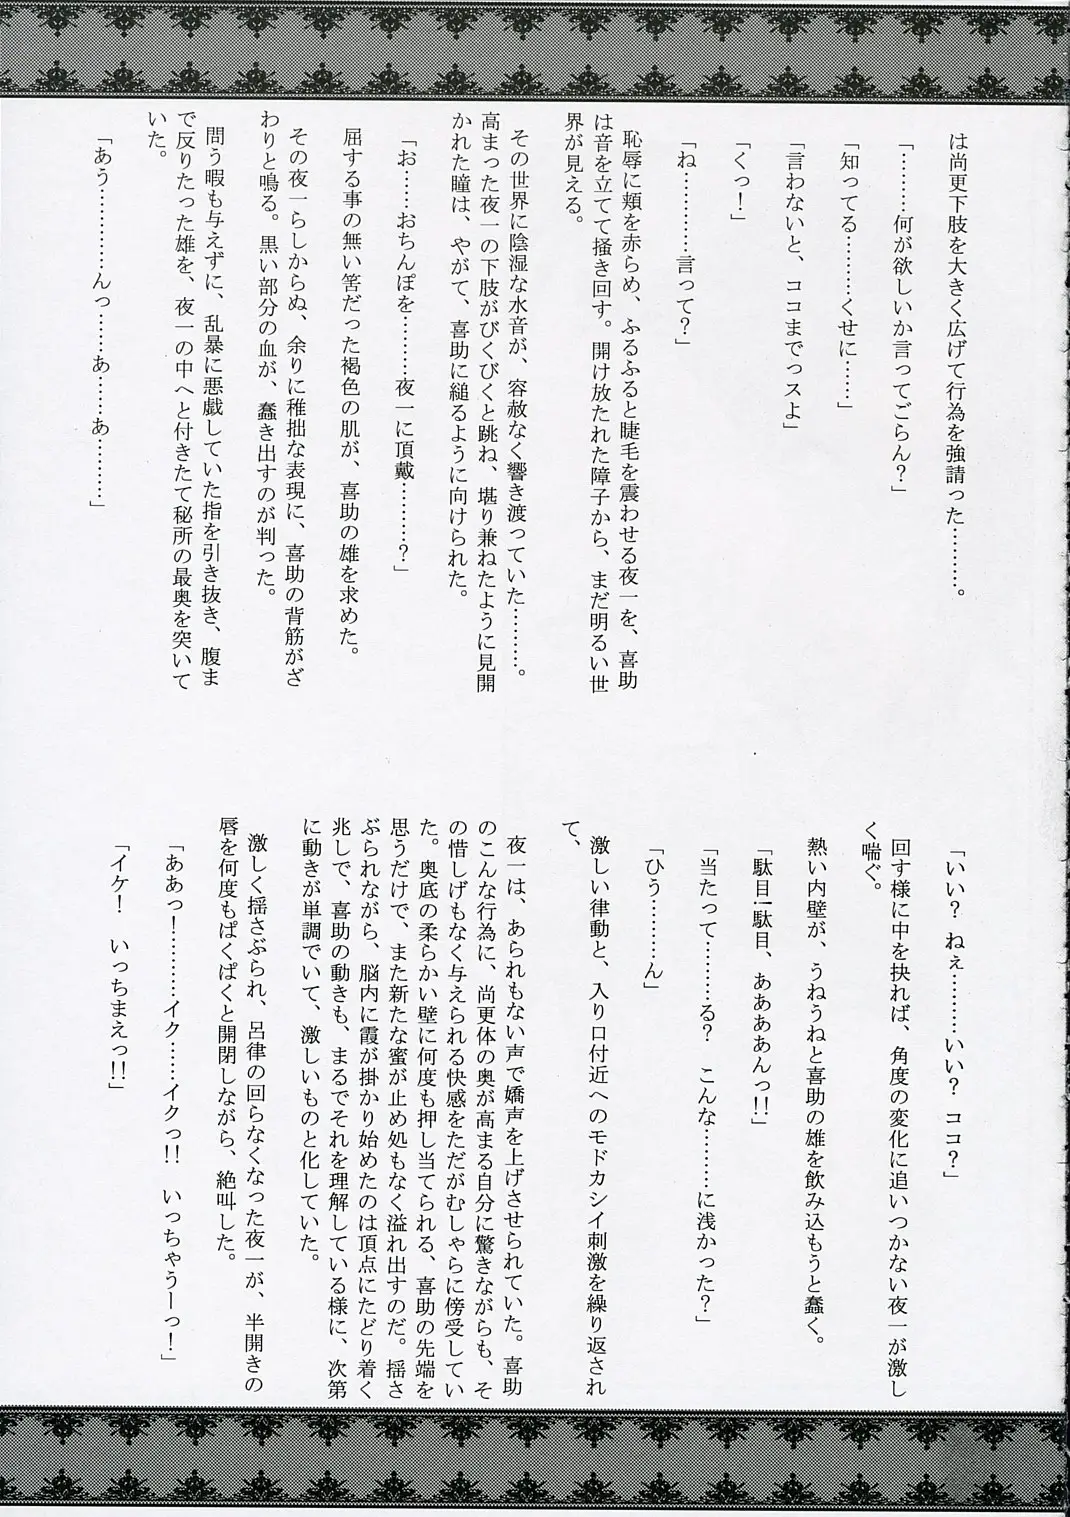 は尚更下肢を大きく広げて行為を強請った…………。
「………何が欲しいか言ってごらん？」
「知ってる………くせに……」
「言わないと、ココまでっスよ」
「くっ！」
「ね…………言って？」
恥辱に頬を赤らめ、ふるふると睫毛を震わせる夜一を、喜助
は音を立てて掻き回す。開け放たれた障子から、まだ明るい世
界が見える。
その世界に陰湿な水音が、容赦なく響き渡っていた………。
高まった夜一の下肢がびくびくと跳ね、堪り兼ねたように見開
かれた瞳は、やがて、喜助に縋るように向けられた。
「お……おちんぽを…………夜一に頂戴………？」
屈する事の無い筈だった褐色の肌が、喜助の雄を求めた。
その夜一らしからぬ、余りに稚拙な表現に、喜助の背筋がざ
わりと鳴る。黒い部分の血が、蠢き出すのが判った。
問う暇も与えずに、乱暴に悪戯していた指を引き抜き、腹ま
で反りたった雄を、夜一の中へと付きたて秘所の最奥を突いて
いた。
「あう…………んっ……あ……あ………」
「いい？ ねぇ………いい？ ココ？」
回す様に中を抉れば、角度の変化に追いつかない夜一が激し
く喘ぐ。
熱い内壁が、うねうねと喜助の雄を飲み込もうと蠢く。
「駄目！駄目、ああああんっ!!」
「当たって………る？ こんな………に浅かった？」
「ひう…………ん」
激しい律動と、入り口付近へのモドカシイ刺激を繰り返され
て、
夜一は、あられもない声で嬌声を上げさせられていた。喜助
のこんな行為に、尚更体の奥が高まる自分に驚きながらも、そ
の惜しげもなく与えられる快感をただがむしゃらに傍受してい
た。奥底の柔らかい壁に何度も押し当てられる、喜助の先端を
思うだけで、また新たな蜜が止め処もなく溢れ出すのだ。揺さ
ぶられながら、脳内に霞が掛かり始めたのは頂点にたどり着く
兆しで、喜助の動きも、まるでそれを理解している様に、次第
に動きが単調でいて、激しいものと化していた。
激しく揺さぶられ、呂律の回らなくなった夜一が、半開きの
唇を何度もぱくぱくと開閉しながら、絶叫した。
「ああっ！………イク……イクっ!! いっちゃうーっ！」
「イケ！ いっちまえっ!!」